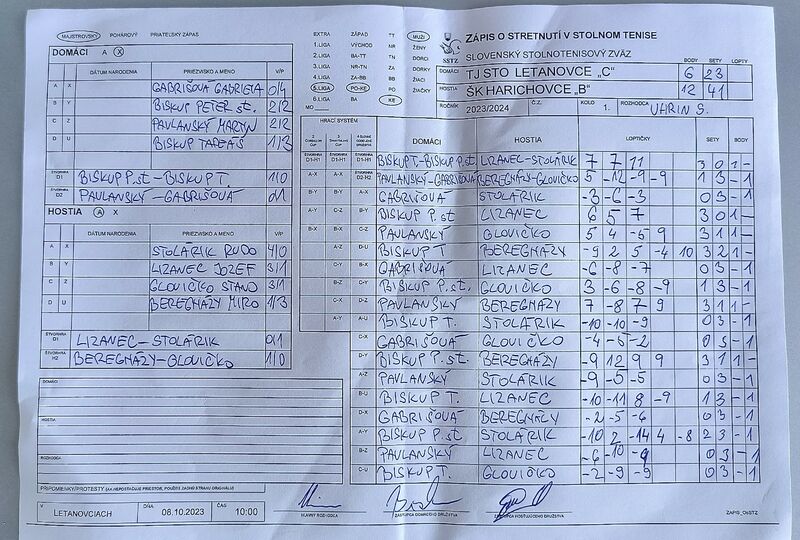 MAJSTROVSKÝ POHÁROVÝ PRIATEĽSKÝ ZÁPAS
ZÁPIS O STRETNUTÍ V STOLNOM TENISE
SLOVENSKÝ STOLNOTENISOVÝ ZVÄZ
SSTZ
EXTRA ZÁPAD TT MUŽI
1.LIGA VÝCHOD NR ŽENY
2.LIGA BA-TT TN DORCI
3.LIGA NR-TN ZA DORKY
4.LIGA ZA-BB BB ŽIACI
5.LIGA PO-KE PO ŽIAČKY
6.LIGA BA KE
MO
BODY SETY LOPTY
DOMÁCI TJ STO LETANOVCE „C“ 6 23
HOSTIA ŠK HARICHOVCE „B“ 12 41
ROČNÍK 2023/2024 Č.Z. KOLO 1. ROZHODCA UHRIN S.
DOMÁCI A X
DÁTUM NARODENIA PRIEZVISKO A MENO V/P
A X GABRIŠOVÁ GABRIELA 0/4
B Y BISKUP PETER st. 2/2
C Z PAVLANSKÝ MARTIN 2/2
D U BISKUP TADEÁŠ 1/3
ŠTVORHRA D1 BISKUP P.st - BISKUP T. 1/0
ŠTVORHRA D2 PAVLANSKÝ - GABRIŠOVÁ 0/1
HOSTIA A X
DÁTUM NARODENIA PRIEZVISKO A MENO V/P
A X STOLÁRIK RUDO 4/0
B Y LIZANEC JOZEF 3/1
C Z GLOVIČKO STANO 3/1
D U BEREGHÁZY MIRO 1/3
ŠTVORHRA D1 LIZANEC-STOLÁRIK 0/1
ŠTVORHRA H2 BEREGHÁZY-GLOVIČKO 1/0
HRACÍ SYSTÉM
DOMÁCI HOSTIA LOPTIČKY SETY BODY
BISKUP T.-BISKUP P.st LIZANEC-STOLÁRIK 7 7 11 3 0 1 -
PAVLANSKÝ-GABRIŠOVÁ BEREGHÁZY-GLOVIČKO 5 -12 -9 -9 1 3 - 1
GABRIŠOVÁ STOLÁRIK -3 -6 -3 0 3 - 1
BISKUP P.st LIZANEC 6 5 7 3 0 1 -
PAVLANSKÝ GLOVIČKO 5 4 -5 9 3 1 1 -
BISKUP T BEREGHÁZY -9 2 5 -4 10 3 2 1 -
GABRIŠOVÁ LIZANEC -6 -8 -7 0 3 - 1
BISKUP P.st. GLOVIČKO 3 -6 -8 -9 1 3 - 1
PAVLANSKÝ BEREGHÁZY 7 -8 7 9 3 1 1 -
BISKUP T. STOLÁRIK -10 -10 -9 0 3 - 1
GABRIŠOVÁ GLOVIČKO -4 -5 -2 0 3 - 1
BISKUP P.st. BEREGHÁZY -9 12 9 9 3 1 1 -
PAVLANSKÝ STOLÁRIK -9 -5 -5 0 3 - 1
BISKUP T. LIZANEC -10 -11 8 -9 1 3 - 1
GABRIŠOVÁ BEREGHÁZY -2 -5 -6 0 3 - 1
BISKUP P.st STOLÁRIK -10 2 -14 4 -8 2 3 - 1
PAVLANSKÝ LIZANEC -6 -10 -9 0 3 - 1
BISKUP T. GLOVIČKO -2 -9 -9 0 3 - 1
DOMÁCI
HOSTIA
ROZHODCA
PRIPOMIENKY/PROTESTY (AK NEPOSTAČUJE PRIESTOR, POUŽITE ZADNÚ STRANU ORIGINÁLU)
V LETANOVCIACH DŇA 08.10.2023 ČAS 10:00
HLAVNÝ ROZHODCA ZÁSTUPCA DOMÁCEHO DRUŽSTVA ZÁSTUPCA HOSŤUJÚCEHO DRUŽSTVA ZAPIS_OsSTZ